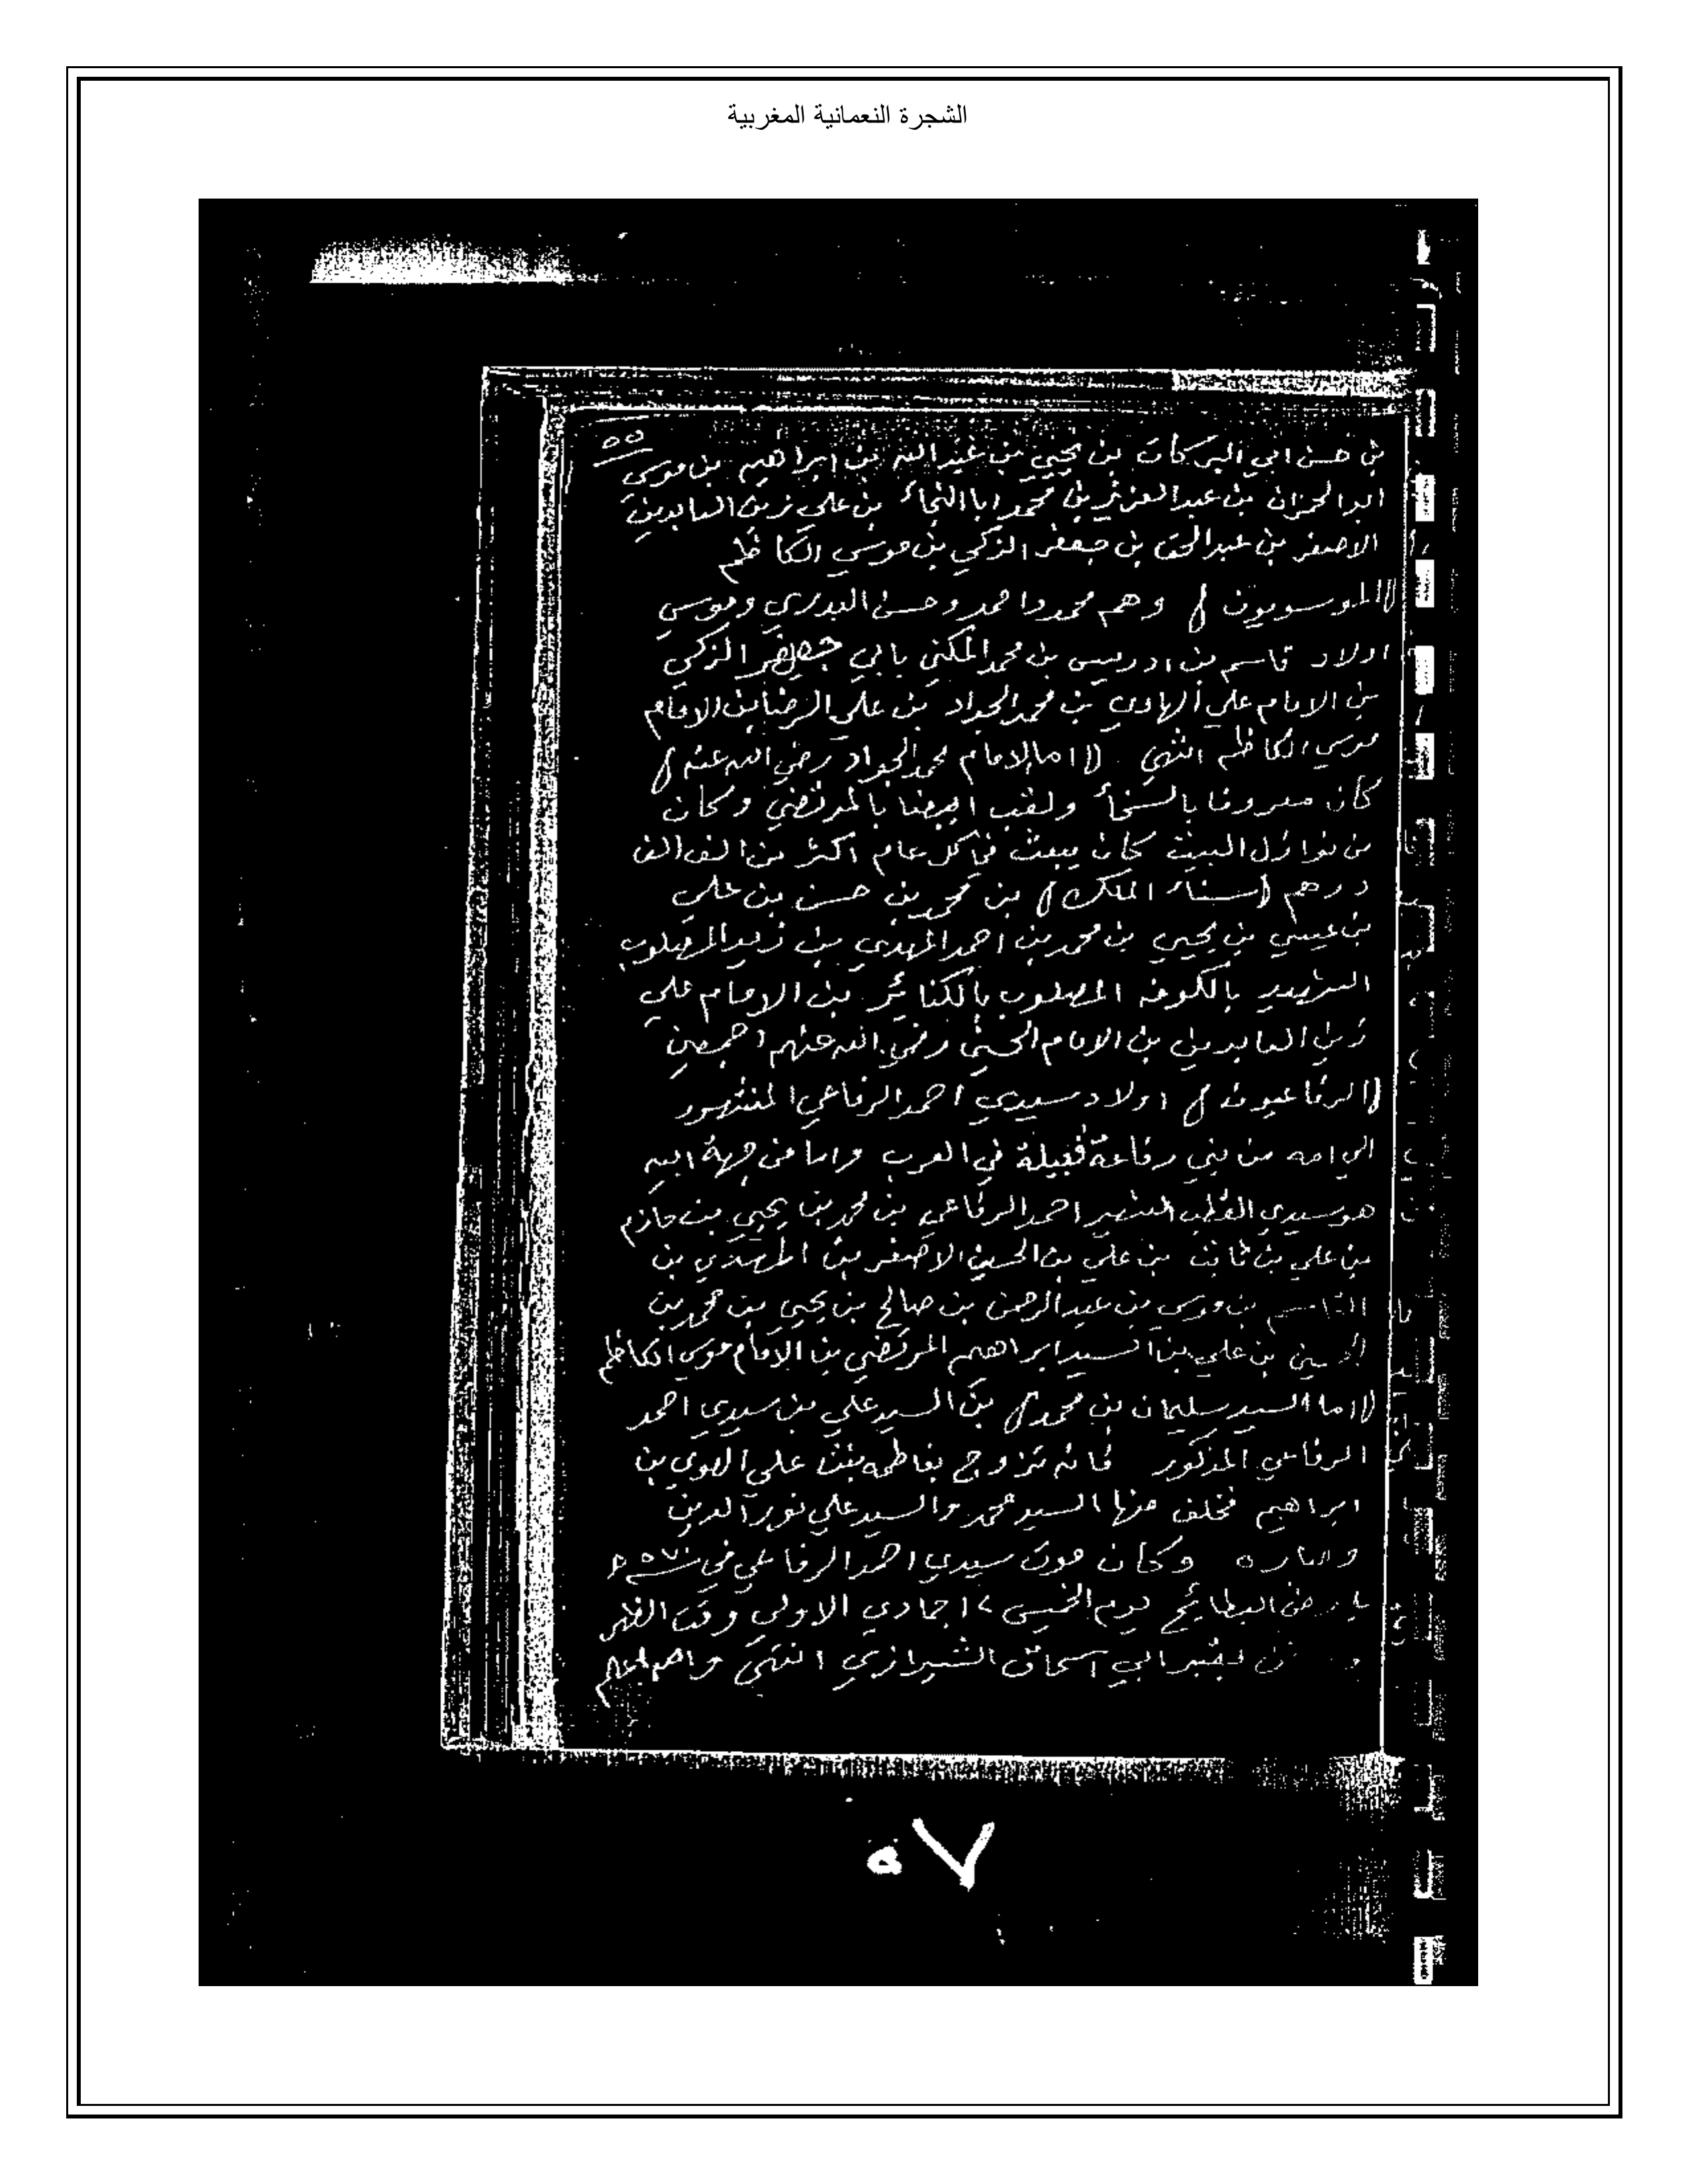 الشجرة النعمانية المغربية
٥٥
بن حسن ابي البركات بن يحيي بن عبد الله بن ابراهيم بن موسى
ابو الحزان بن عبد العزيز بن محمد ابا النجاء بن علي زين العابدين
الاصغر بن عبد الحق بن جعفر الزكي بن موسي الكاظم
(الموسويون) وهم محمد واحمد وحسن البدري وموسي
اولاد قاسم بن ادريس بن محمد المكني بابي جعفر الزكي
بن الامام علي الهادي بن محمد الجواد بن علي الرضا بن الامام
موسي الكاظم انتهي (اما الامام محمد الجواد رضي الله عنه)
كان معروفا بالسخاء ولقب ايضا بالمرتضي وكان
من البيت كان يبعث في كل عام اكثر من الف الف
درهم (سناء الملك) بن محمد بن حسن بن علي
بن عيسي بن يحيي بن محمد بن احمد المهدي بن زيد المصلوب
بالكوفه المصلوب بن الامام علي
زين العابدين بن الامام الحسين رضي الله عنهم اجمعين
(الرفاعيون) اولاد سيدي احمد الرفاعي المشهور
الي امه من بني رفاعة قبيلة في العرب واما من جهة ابيه
هو سيدي القطب الشهير احمد الرفاعي بن محمد بن يحيي بن حازم
بن علي بن ثابت بن علي بن الحسين الاصغر بن المهدي بن
القاسم بن موسي بن عبد الرحمن بن صالح بن يحيي بن محمد بن
الحسين بن علي بن السيد ابراهيم المرتضي بن الامام موسي الكاظم
(اما السيد سليمان بن محمد) بن السيد علي بن سيدي احمد
الرفاعي المذكور فانه تزوج بفاطمه بنت علي الهوي بن
ابراهيم فخلف منها السيد محمد والسيد علي نور الدين
وكان موت سيدي احمد الرفاعي في سنه ٥٧٠
البطائح يوم الخميس ١٢ جمادي الاولي وقت الظهر
ابي اسحاق الشيرازي انتهي والله اعلم
٥٧